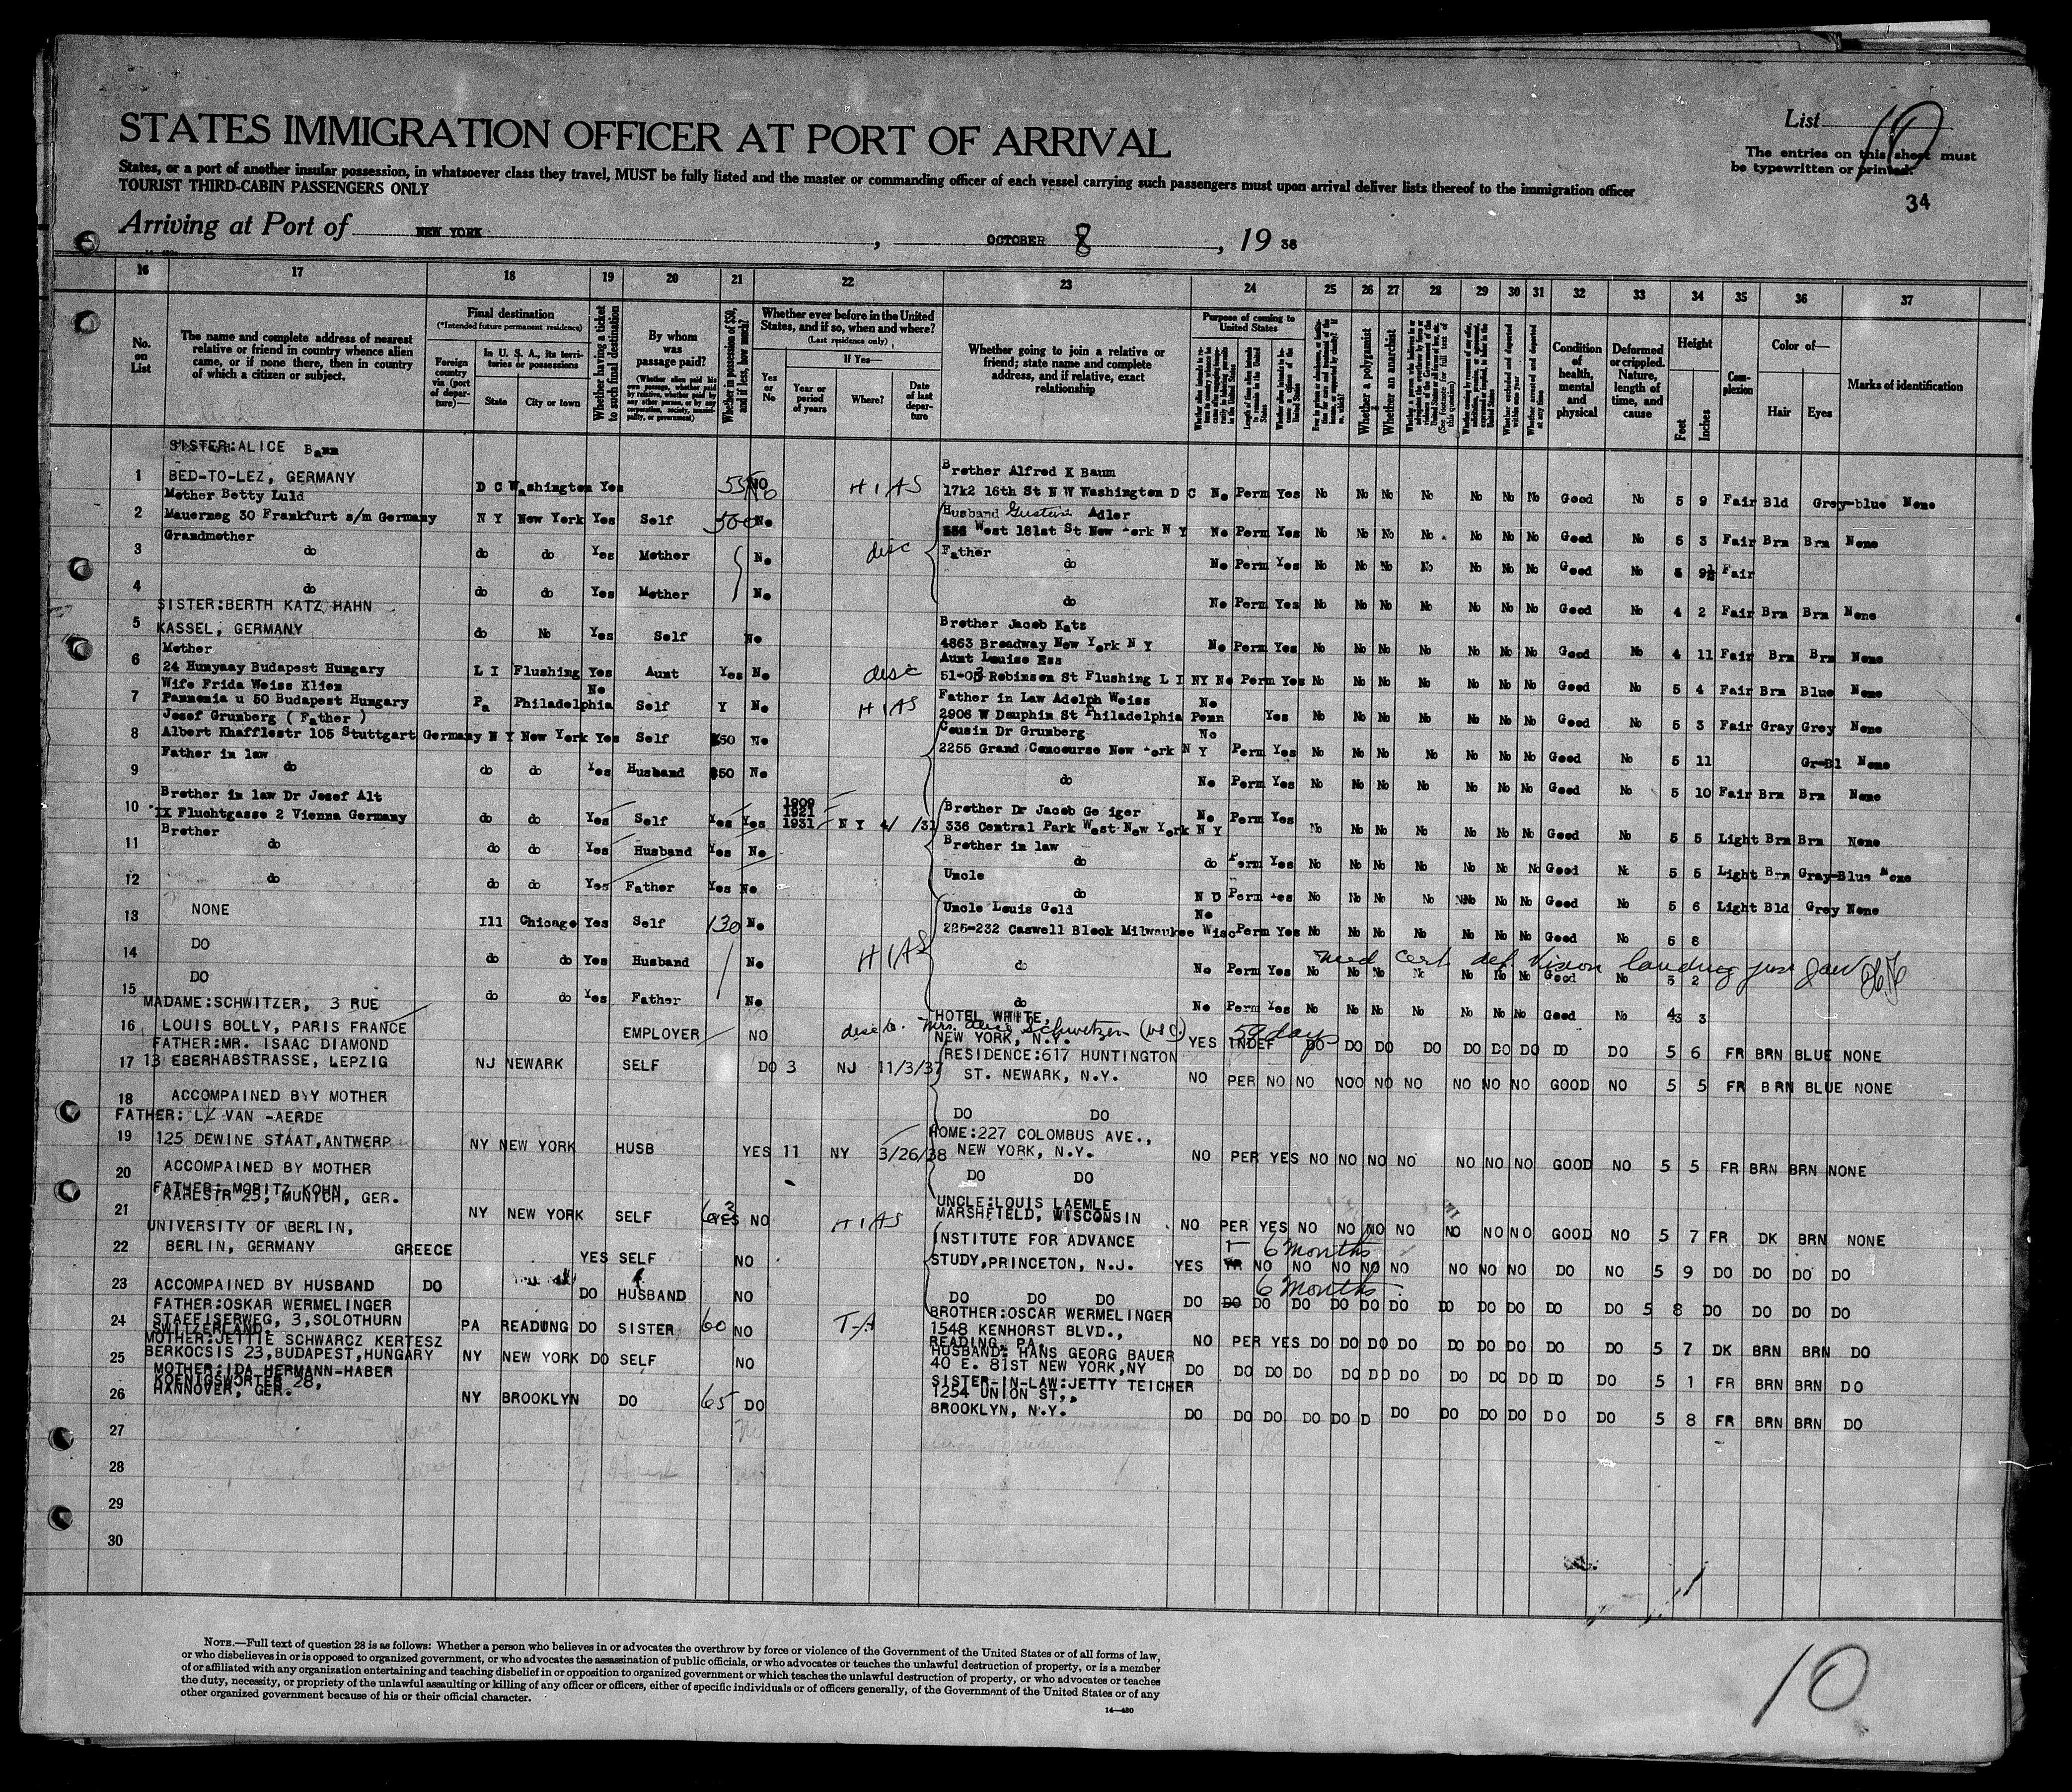 STATES IMMIGRATION OFFICER AT PORT OF ARRIVAL
List 10
The entries on this sheet must
be typewritten or printed.
States, or a port of another insular possession, in whatsoever class they travel, MUST be fully listed and the master or commanding officer of each vessel carrying such passengers must upon arrival deliver lists thereof to the immigration officer
TOURIST THIRD-CABIN PASSENGERS ONLY
34
Arriving at Port of NEW YORK , OCTOBER 8 , 19 38
16 17 18 19 20 21 22 23 24 25 26 27 28 29 30 31 32 33 34 35 36 37
No. on List
The name and complete address of nearest relative or friend in country whence alien came, or if none there, then in country of which a citizen or subject.
Final destination
(*Intended future permanent residence)
Foreign country via (port of departure)—
In U. S. A., its territories or possessions
State
City or town
Whether having a ticket to such final destination
By whom was passage paid?
(Whether alien paid his own passage, whether paid by relative, whether paid by any other person, or by any corporation, society, municipality, or government)
Whether in possession of $50, and if less, how much?
Whether ever before in the United States, and if so, when and where?
(Last residence only)
If Yes—
Yes or No
Year or period of years
Where?
Date of last departure
Whether going to join a relative or friend; state name and complete address, and if relative, exact relationship
Purpose of coming to United States
Whether a polygamist
Whether an anarchist
Condition of health, mental and physical
Deformed or crippled. Nature, length of time, and cause
Height
Feet
Inches
Complexion
Color of—
Hair
Eyes
Marks of identification
SISTER:ALICE Baum
1 BED-TO-LEZ, GERMANY D C Washington Yes NO HIAS Brother Alfred K Baum
17k2 16th St N W Washington D C No Perm Yes No No No No No No No Good No 5 9 Fair Bld Grey-blue None
Mother Betty Luld
2 Mauerweg 30 Frankfurt s/m Germany N Y New York Yes Self 500 No Husband Adler
West 181st St New York N Y No Perm Yes No No No No No No No Good No 5 3 Fair Brn Brn None
Grandmother
3 do do do Yes Mother No disc Father
do No Perm Yes No No No No No No No Good No 9½ Fair
4 do do do Yes Mother No
do No Perm Yes No No No No No No No Good No 4 2 Fair Brn Brn None
SISTER:BERTH KATZ HAHN
5 KASSEL, GERMANY do No Yes Self No Brother Jacob Katz
4863 Broadway New York N Y No Perm Yes No No No No No No No Good No 4 11 Fair Brn Brn None
Mother
6 24 Hunyaay Budapest Hungary L I Flushing Yes Aunt Yes No disc Aunt Louise Ess
51-03 Robinson St Flushing L I NY No Perm Yes No No No No No No No Good No 5 4 Fair Brn Blue None
Wife Frida Weiss Klien
7 Pannonia u 50 Budapest Hungary Pa Philadelphia No Self Y No HIAS Father in Law Adolph Weiss No
2906 W Dauphin St Philadelphia Penn Yes No No No No No No No Good No 5 3 Fair Gray Grey None
Josef Grunberg ( Father )
8 Albert Khafflestr 105 Stuttgart Germany N Y New York Yes Self $50 No Cousin Dr Grunberg No
2255 Grand Concourse New York N Y Perm Yes No No No No No No No Good No 5 11 Gr-Bl None
Father in law
9 do do do Yes Husband $50 No
do No Perm Yes No No No No No No No Good No 5 10 Fair Brn Brn None
Brother in law Dr Josef Alt
10 IX Fluchtgasse 2 Vienna Germany do do Yes Self Yes Yes 1909 1921 1931 N Y Brother Dr Jacob Geiger No Perm Yes
336 Central Park West New York N Y No No No No No No No Good No 5 5 Light Brn Brn None
Brother
11 do do do Yes Husband Yes No Brother in law
do do Perm Yes No No No No No No No Good No 5 5 Light Brn Gray-Blue None
12 do do do Yes Father Yes No Uncle
do N O Perm Yes No No No No No No No Good No 5 6 Light Bld Grey None
13 NONE Ill Chicago Yes Self 130 No Uncle Louis Gold No
225-232 Caswell Block Milwaukee Wisc Perm Yes No No No No No No No Good No 5 8
14 DO do do Yes Husband No HIAS do No Perm Yes No No No No No No No Good No 5 2
med cert def vision
15 DO do do Yes Father No do No Perm Yes No No No No No No No Good No 4 3
MADAME:SCHWITZER, 3 RUE
16 LOUIS BOLLY, PARIS FRANCE EMPLOYER NO HOTEL WHITE,
NEW YORK, N.Y. YES INDEF 59 days DO DO DO DO DO DO DO DO DO 5 6 FR BRN BLUE NONE
FATHER:MR. ISAAC DIAMOND
17 13 EBERHABSTRASSE, LEPZIG NJ NEWARK SELF DO 3 NJ 11/3/37 RESIDENCE:617 HUNTINGTON
ST. NEWARK, N.Y. NO PER NO NO NOO NO NO NO NO NO GOOD NO 5 5 FR BRN BLUE NONE
18 ACCOMPAINED BYY MOTHER DO DO
FATHER: VAN -AERDE
19 125 DEWINE STAAT,ANTWERP NY NEW YORK HUSB YES 11 NY 3/26/38 HOME:227 COLOMBUS AVE.,
NEW YORK, N.Y. NO PER YES NO NO NO NO NO NO NO GOOD NO 5 5 FR BRN BRN NONE
20 ACCOMPAINED BY MOTHER DO DO
FATHER: MORITZ KOHN
21 KARLSTR 25, MUNICH, GER. NY NEW YORK SELF YES NO HIAS UNCLE:LOUIS LAEMLE
MARSHFIELD, WISCONSIN NO PER YES NO NO NO NO NO NO NO GOOD NO 5 7 FR DK BRN NONE
UNIVERSITY OF BERLIN,
22 BERLIN, GERMANY GREECE YES SELF NO INSTITUTE FOR ADVANCE
STUDY,PRINCETON, N.J. YES YR 6 months NO NO NO NO NO NO NO NO DO NO 5 9 DO DO DO DO
23 ACCOMPAINED BY HUSBAND DO DO HUSBAND NO DO DO DO DO 6 months DO DO DO DO DO DO DO DO DO DO 5 8 DO DO DO DO
FATHER:OSKAR WERMELINGER
24 STAEFISERWEG, 3,SOLOTHURN PA READUNG DO SISTER 60 NO T-A BROTHER:OSCAR WERMELINGER
SWITZERLAND 1548 KENHORST BLVD.,
READING, PA. NO PER YES DO DO DO DO DO DO DO DO DO 5 7 DK BRN BRN DO
MOTHER:JETTIE SCHWARCZ KERTESZ
25 BERKOCSIS 23,BUDAPEST,HUNGARY NY NEW YORK DO SELF NO HUSBAND: HANS GEORG BAUER
40 E. 81ST NEW YORK,NY DO DO DO DO DO DO DO DO DO DO DO DO 5 1 FR BRN BRN DO
MOTHER:IDA HERMANN-HABER
KOENIGSWORTER 28,
26 HANNOVER, GER. NY BROOKLYN DO 65 DO SISTER-IN-LAW:JETTY TEICHER
1254 UNION ST,
BROOKLYN, N.Y. DO DO DO DO DO D DO DO DO DO DO DO 5 8 FR BRN BRN DO
27
28
29
30
NOTE.—Full text of question 28 is as follows: Whether a person who believes in or advocates the overthrow by force or violence of the Government of the United States or of all forms of law,
or who disbelieves in or is opposed to organized government, or who advocates the assassination of public officials, or who advocates or teaches the unlawful destruction of property, or is a member
of or affiliated with any organization entertaining and teaching disbelief in or opposition to organized government or which teaches the unlawful destruction of property, or who advocates or teaches
the duty, necessity, or propriety of the unlawful assaulting or killing of any officer or officers, either of specific individuals or of officers generally, of the Government of the United States or of any
other organized government because of his or their official character.
14—430
10